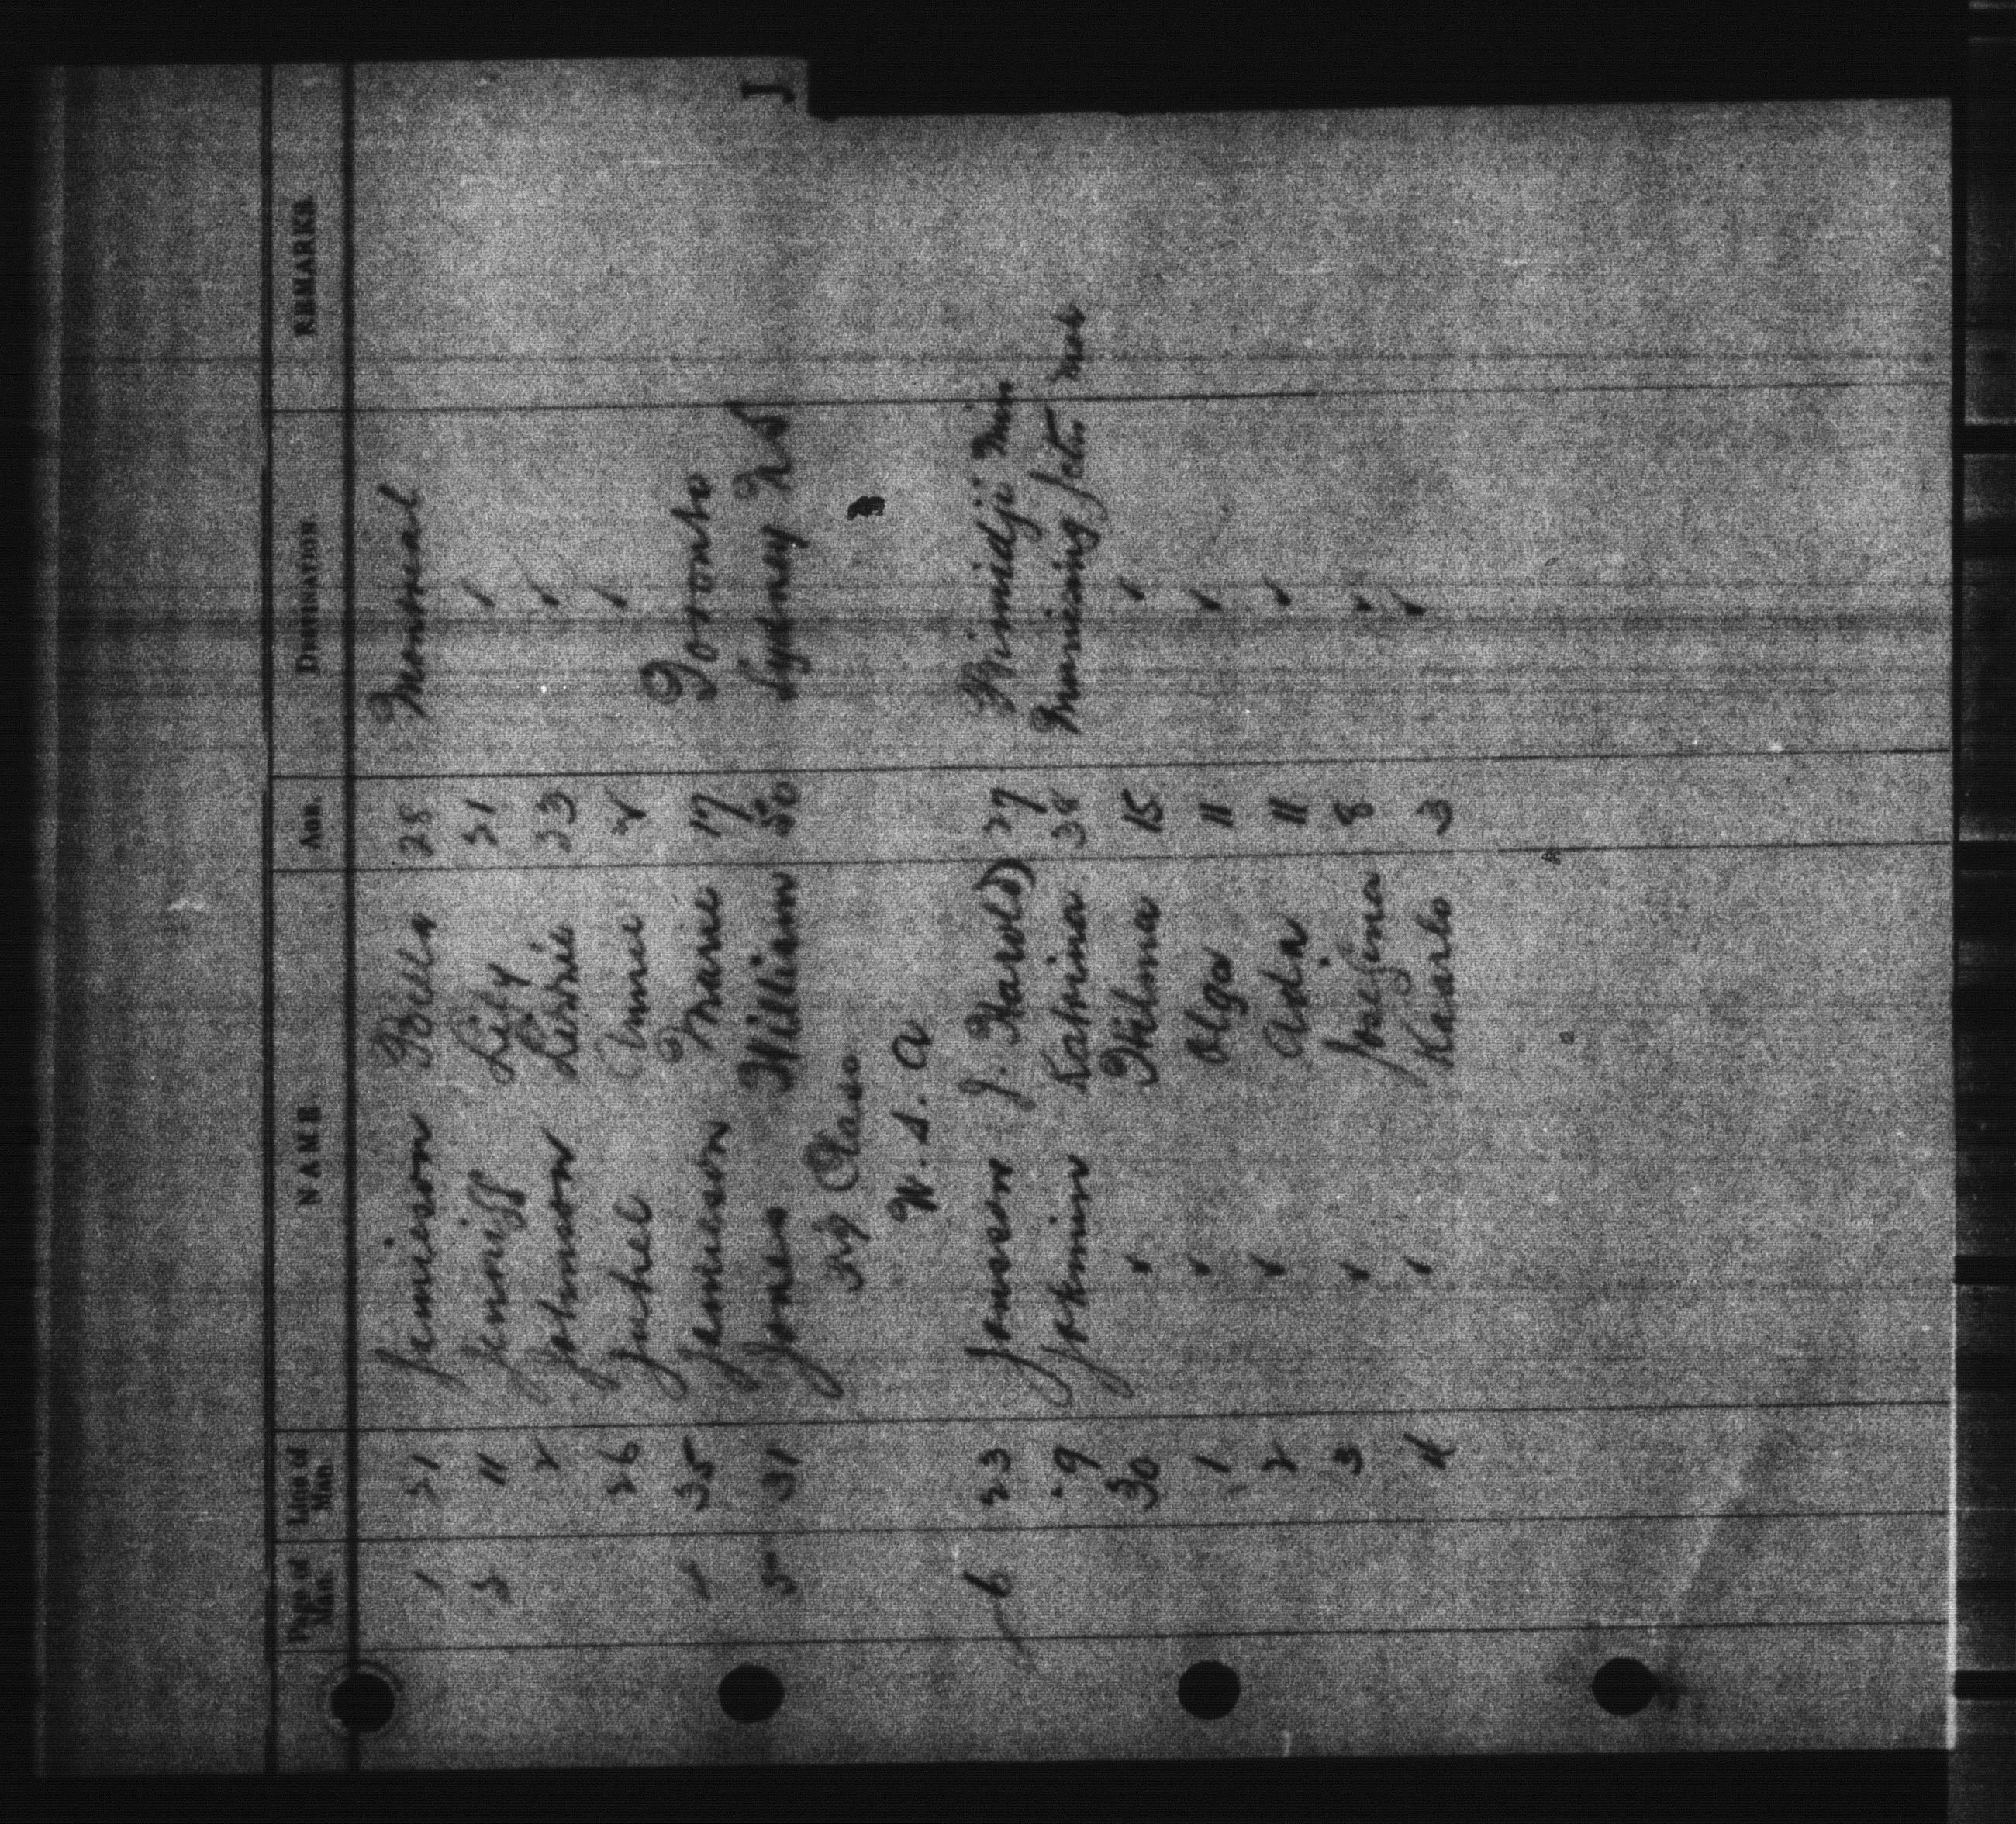 J
Page of Man. Line of Man. NAME. AGE. DESTINATION. REMARKS.
1 21 Jamieson Bella 28 Montreal
5 11 Jenniff Lily 21 ✓
2 Johnson Lizzie 23 ✓
26 Juhel Annie ✓
35 Jameson Marie 17 Toronto
5 31 Jones William 50 Sydney NS
Class
U.S.A
6 23 Jonsson J. Harold) 27 Bimidji Min
9 Jokminn Katrina 38
30 ✓ Hilma 15 ✓
1 ✓ Olga 11 ✓
2 ✓ Ada 11 ✓
3 ✓ Josefina 8 ✓
4 ✓ Kaarlo 3 ✓